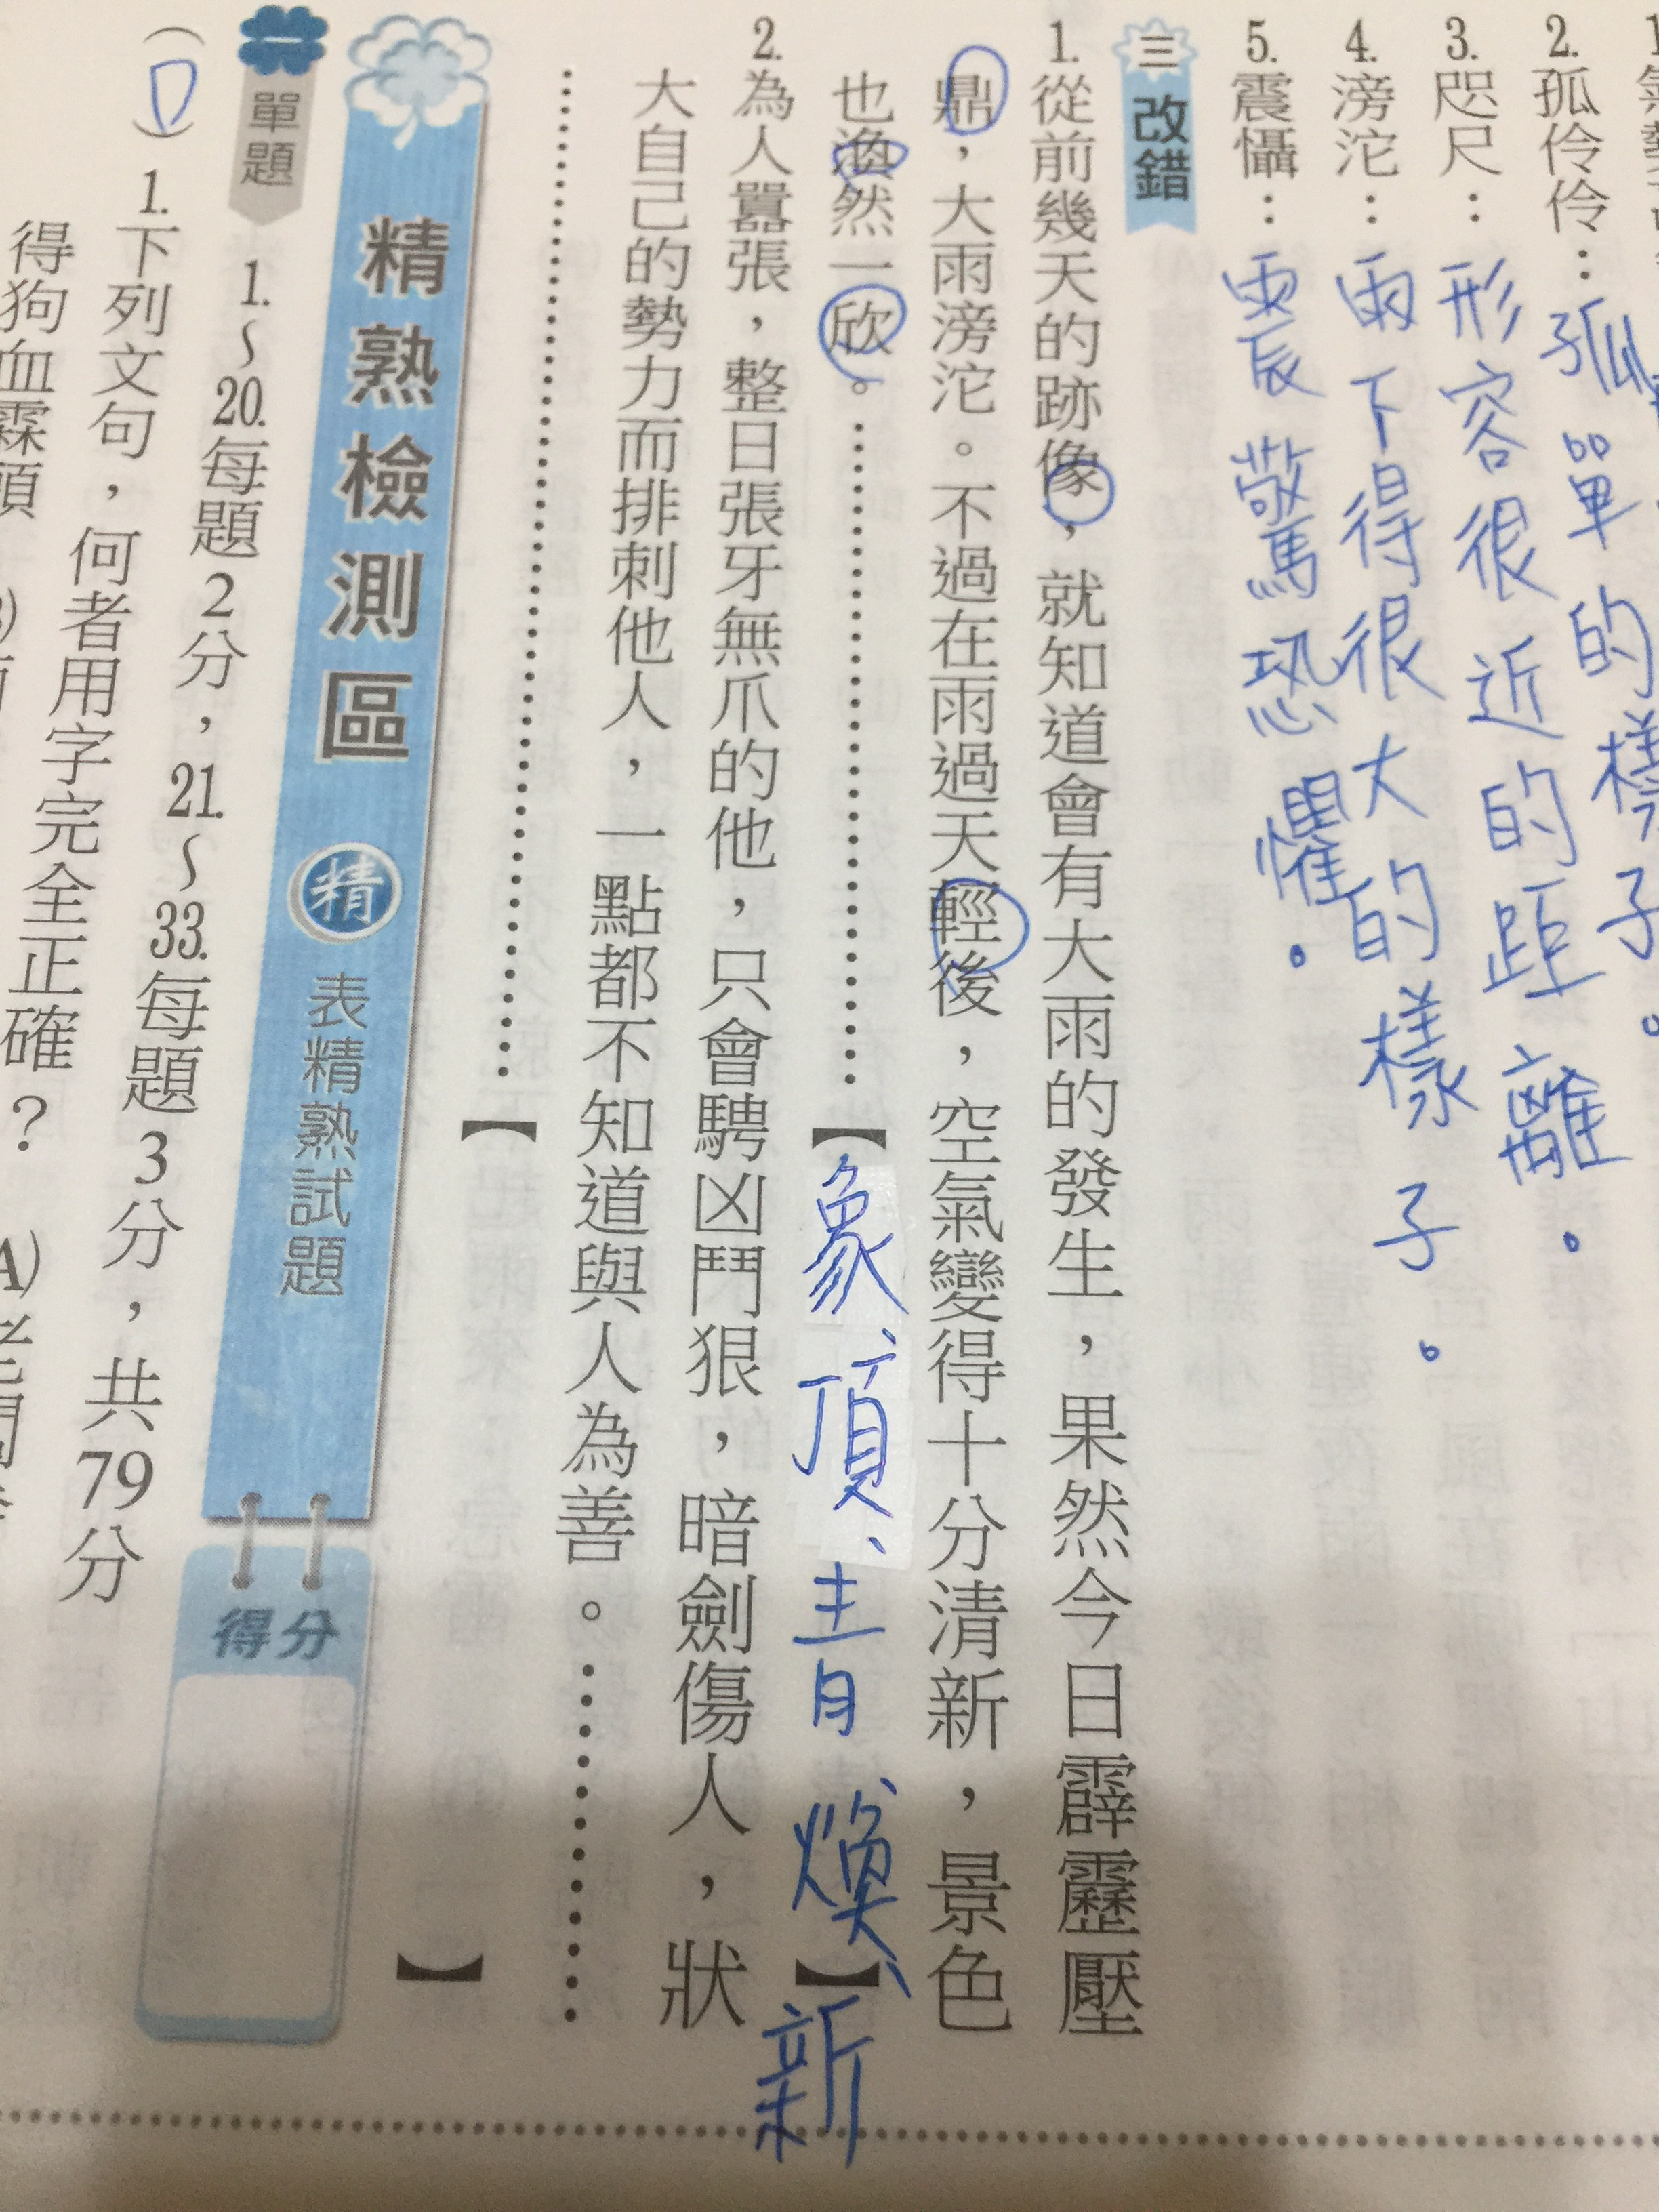 2. 孤伶伶：孤單的樣子。
3. 咫尺：形容很近的距離。
4. 滂沱：雨下得很大的樣子。
5. 震懾：震驚恐懼。
三 改錯
1. 從前幾天的跡像，就知道會有大雨的發生，果然今日霹靂壓
鼎，大雨滂沱。不過在雨過天輕後，空氣變得十分清新，景色
也渙然一欣。【象、頂、青、煥、】新
2. 為人囂張，整日張牙無爪的他，只會騁凶鬥狠，暗劍傷人，狀
大自己的勢力而排刺他人，一點都不知道與人為善。
【
】
精熟檢測區 精 表精熟試題
得分
一 單題 1.～20.每題2分，21.～33.每題3分，共79分
(D) 1. 下列文句，何者用字完全正確？
得狗血霖頭